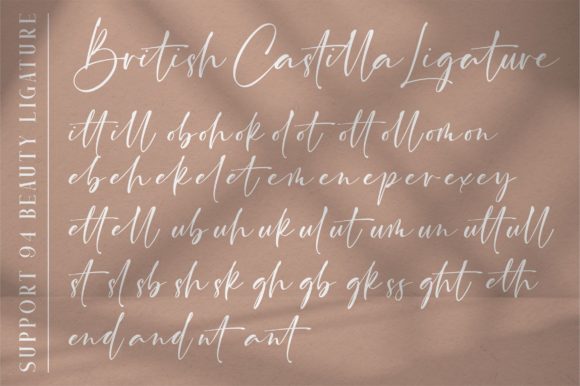 SUPPORT 94 BEAUTY LIGATURE
British Castilla Ligature
it tt ill ob oh ok ol ot ott oll om on
eb eh ek el et em en ep er ex ey
ett ell ub uh uk ul ut um un utt ull
st sl sb sh sk gh gb gk ss ght eth
end and nt ant